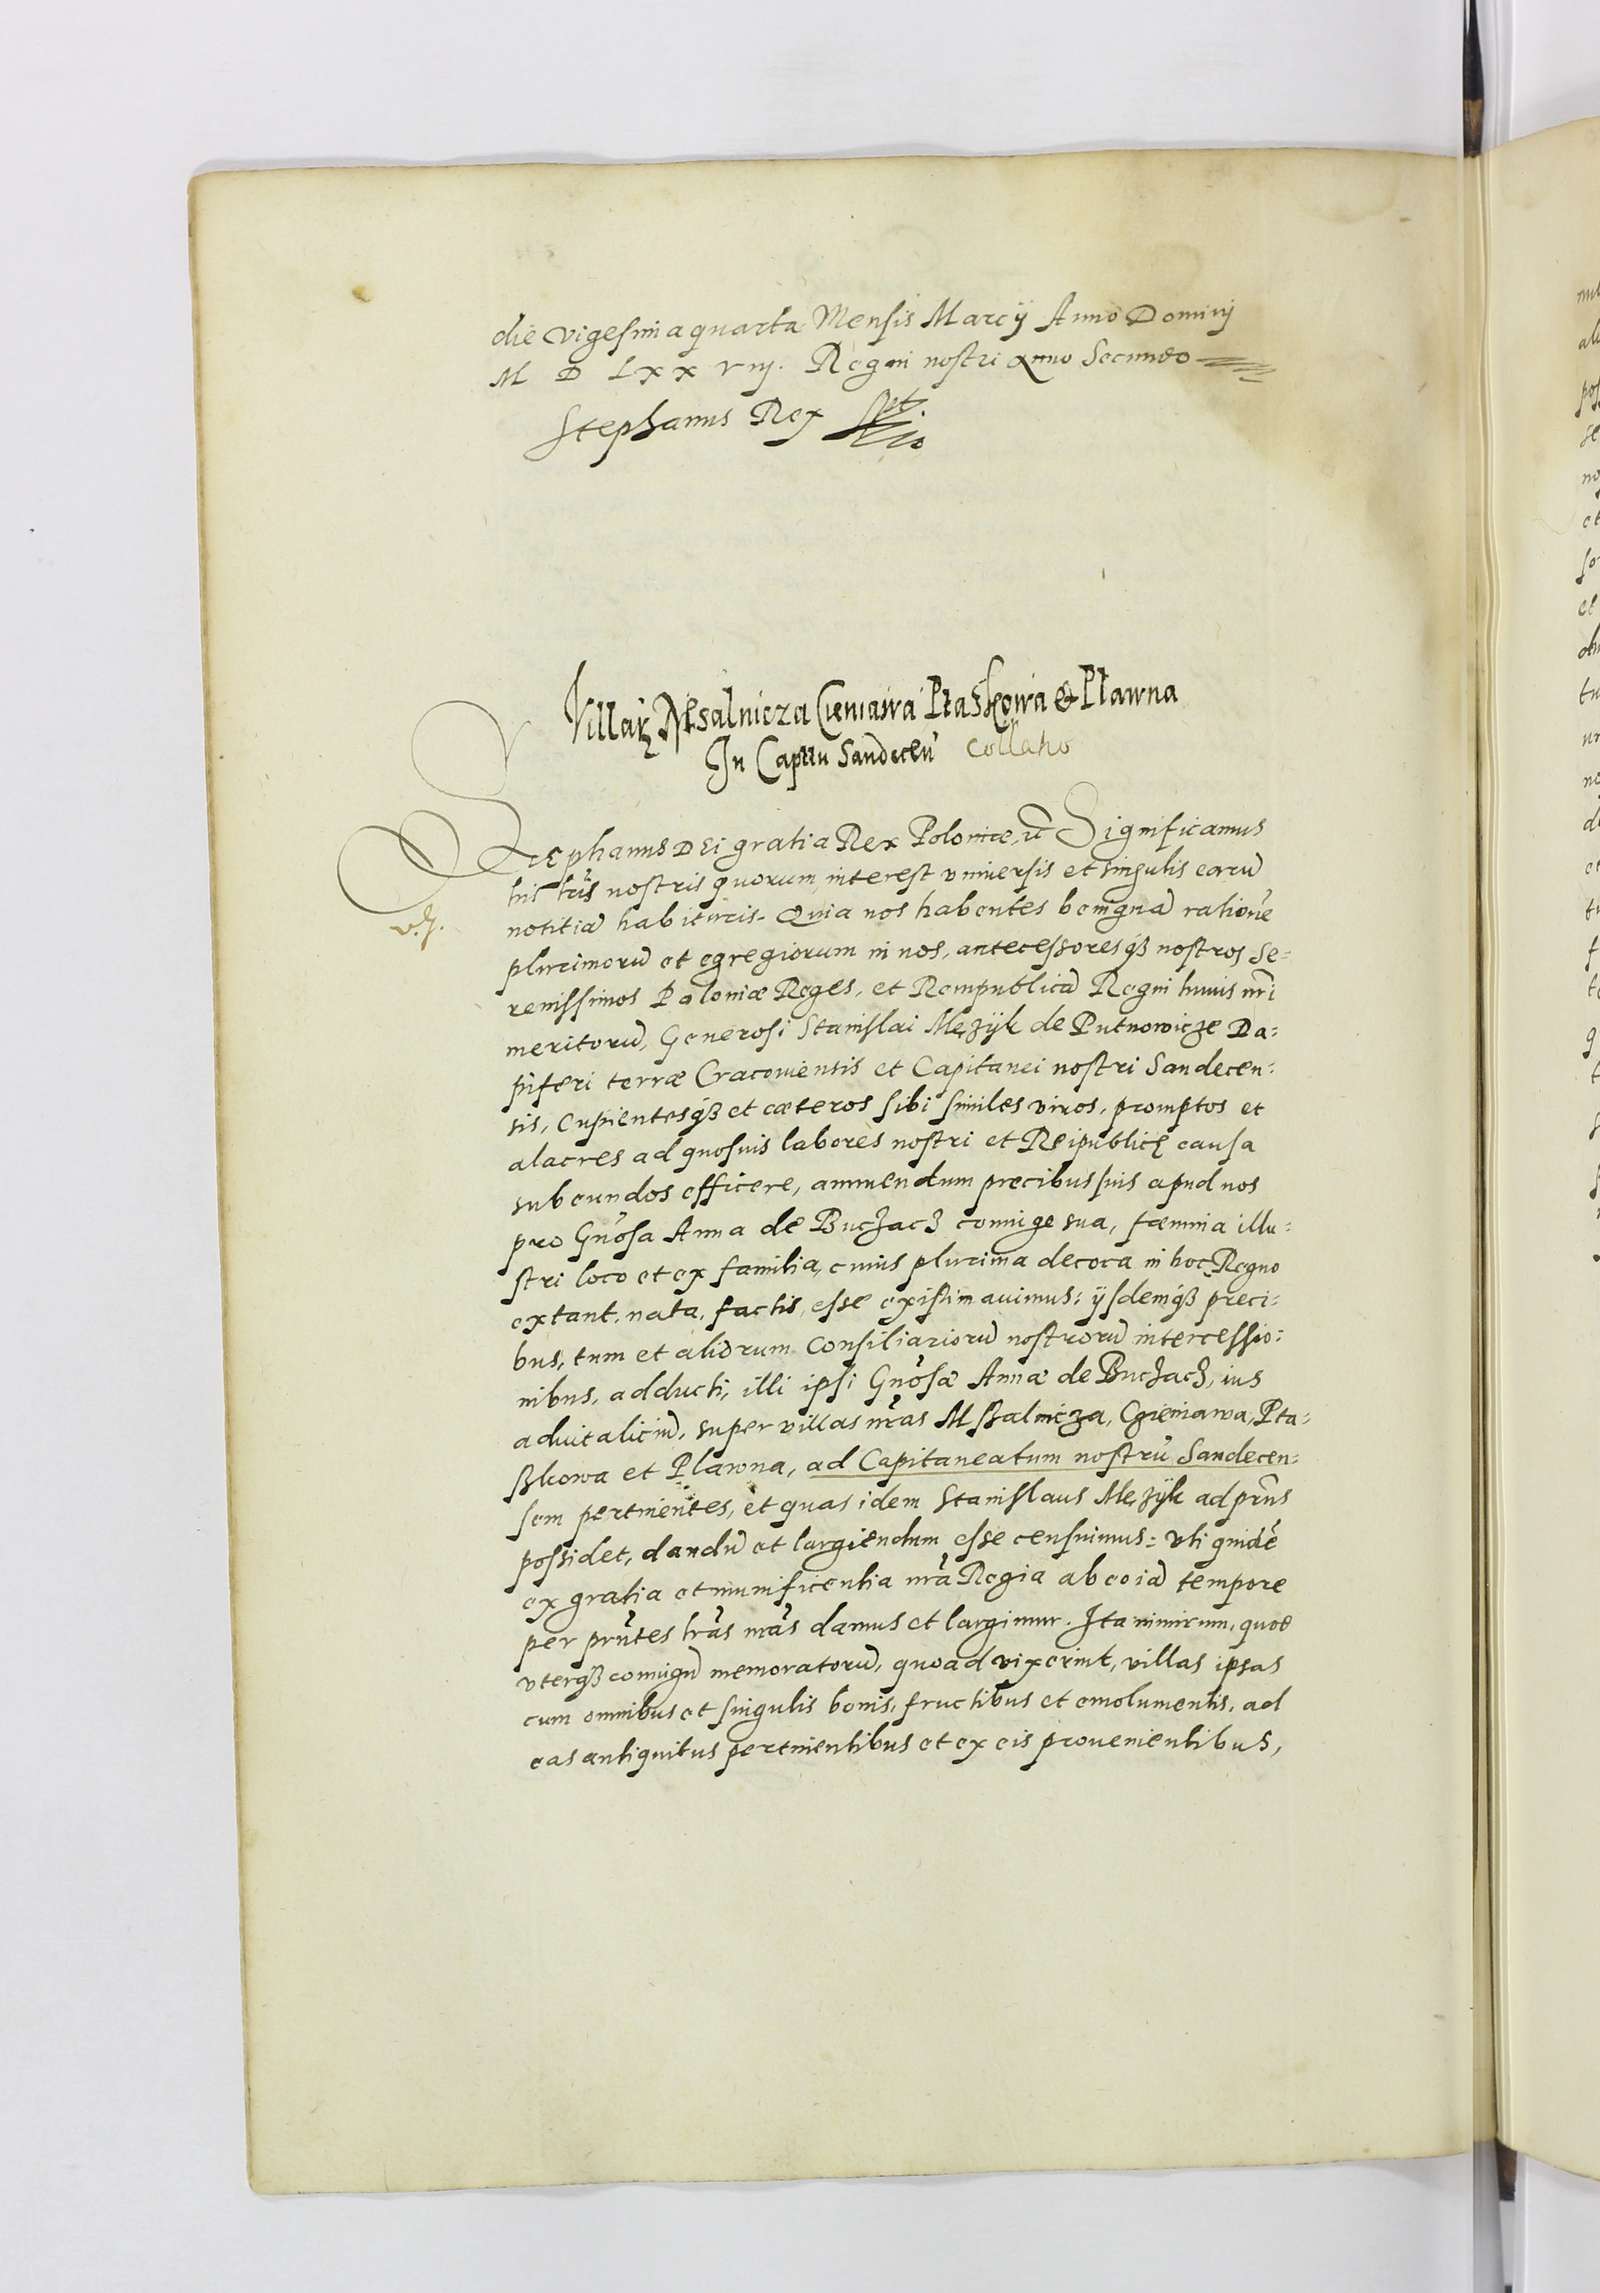 die vigesima quarta Mensis Marcÿ Anno Dominÿ
M D LXX Viÿ. Regni nostri anno Secundo
Stephanus Rex sspt
Villarz Msalnicza Cieniawa Ptaszkowa & Pławna
In Capttu Sandecen̄ Collatio
Stephanus Dei gratia Rex Poloniæ, etc̄ Significamus
his lr̄is nostris quorum interest vniuersis et singulis earū
notitiā habituris. Quia nos habentes benignā rationē
plurimorū et egregiorum in nos, antecessoresq́ß nostros Se=
renissimos Poloniæ Reges, et Rempublicā Regni huius nr̄i
meritorū, Generosi Stanislai Mężÿk de Putnowicze Da=
piferi terræ Cracouiensis et Capitanei nostri Sandecen=
sis, Cupientesq́ß et cæteros sibi similes viros, promptos et
alacres ad quosuis labores nostri et Reipublicę causa
subeundos efficere, annuendum precibus suis apud nos
pro Gn̄osa Anna de Buczacz coniuge sua, fæmina illu=
stri loco et ex familia, cuius plurima decora in hoc Regno
extant, nata, factis, esse existimauimus: ÿsdemq́ß preci=
bus, tum et aliorum Consiliariorū nostrorū intercessio=
nibus, adducti, illi ipsi Gn̄osæ Annæ de Buczacz, ius
aduitaliciū, super villas nr̄as Mßalnicza, Czieniawa, Pta=
ßkowa et Plawna, ad Capitaneatum nostrū Sandecen=
sem pertinentes, et quas idem Stanislaus Mężÿk ad prn̄s
possidet, dandū et largiendum esse censuimus: vti quidē
ex gratia et munificentia nr̄a Regia ab eo iā tempore
per prn̄tes lr̄as nr̄as damus et largimur. Ita nimirum, quod
vterq́ß coniugū memoratorū, quoad vixerint, villas ipsas
cum omnibus et singulis bonis, fructibus et emolumentis, ad
eas antiquitus pertinentibus et ex eis prouenientibus,